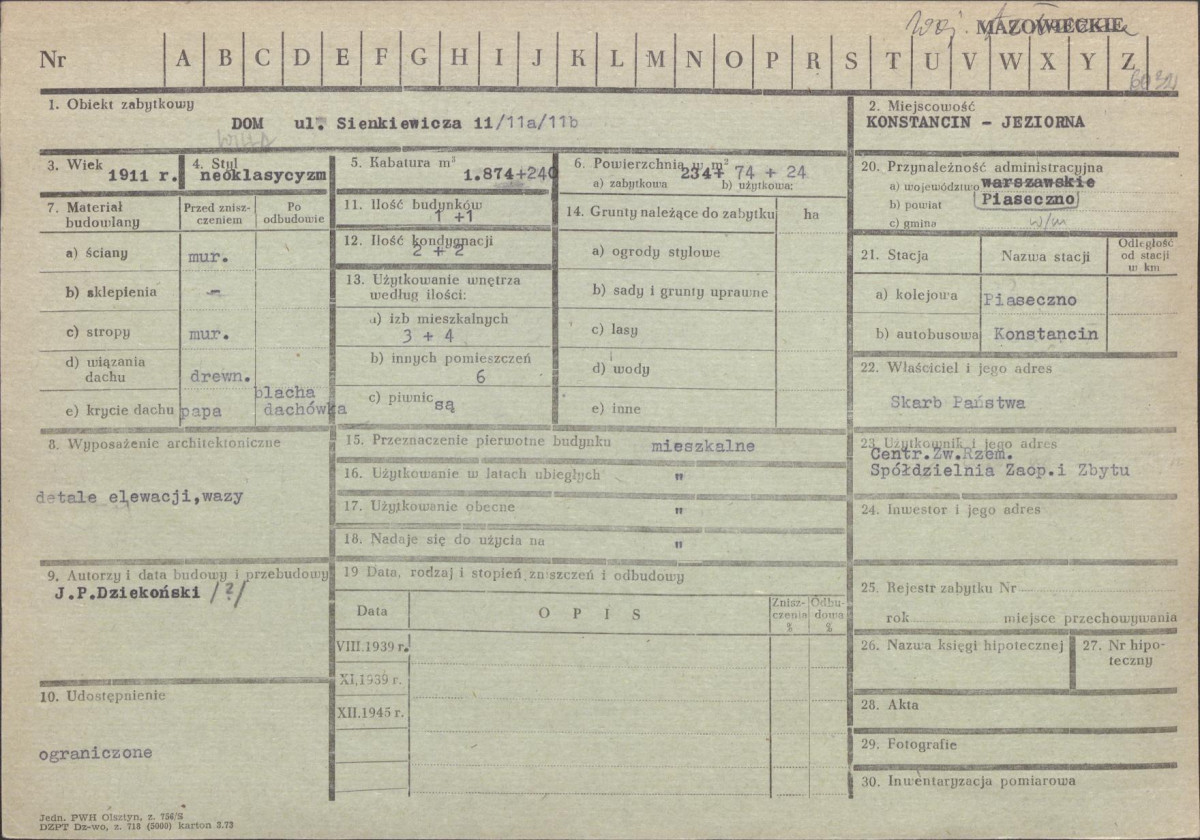 Woj. MAZOWIECKIE
Nr A B C D E F G H I J K L M N O P R S T U V W X Y Z
1. Obiekt zabytkowy
DOM ul. Sienkiewicza 11/11a/11b
WILLA
2. Miejscowość
KONSTANCIN - JEZIORNA
3. Wiek
1911 r.
4. Styl
neoklasycyzm
5. Kabatura m³
1.874+240
6. Powierzchnia w m²
234+ 74 + 24
a) zabytkowa b) użytkowa:
7. Materiał budowlany
Przed zniszczeniem
Po odbudowie
a) ściany mur.
b) sklepienia -
c) stropy mur.
d) wiązania dachu drewn.
e) krycie dachu papa blacha dachówka
8. Wyposażenie architektoniczne
detale elewacji,wazy
9. Autorzy i data budowy i przebudowy
J.P.Dziekoński /?/
10. Udostępnienie
ograniczone
11. Ilość budynków
1 +1
12. Ilość kondygnacji
2 + 2
13. Użytkowanie wnętrza według ilości:
a) izb mieszkalnych
3 + 4
b) innych pomieszczeń
6
c) piwnic są
14. Grunty należące do zabytku ha
a) ogrody stylowe
b) sady i grunty uprawne
c) lasy
d) wody
e) inne
15. Przeznaczenie pierwotne budynku mieszkalne
16. Użytkowanie w latach ubiegłych "
17. Użytkowanie obecne "
18. Nadaje się do użycia na "
19 Data, rodzaj i stopień zniszczeń i odbudowy
Data OPIS Zniszczenia % Odbudowa %
VIII.1939 r.
XI.1939 r.
XII.1945 r.
20. Przynależność administracyjna
a) województwo warszawskie
b) powiat Piaseczno
c) gmina w/m
21. Stacja Nazwa stacji Odległość od stacji w km
a) kolejowa Piaseczno
b) autobusowa Konstancin
22. Właściciel i jego adres
Skarb Państwa
23 Użytkownik i jego adres
Centr.Zw.Rzem.
Spółdzielnia Zaop.i Zbytu
24. Inwestor i jego adres
25. Rejestr zabytku Nr
rok miejsce przechowywania
26. Nazwa księgi hipotecznej
27. Nr hipoteczny
28. Akta
29. Fotografie
30. Inwentaryzacja pomiarowa
Jedn. PWH Olsztyn, z. 756/S
DZPT Dz-wo, z. 718 (5000) karton 3.73